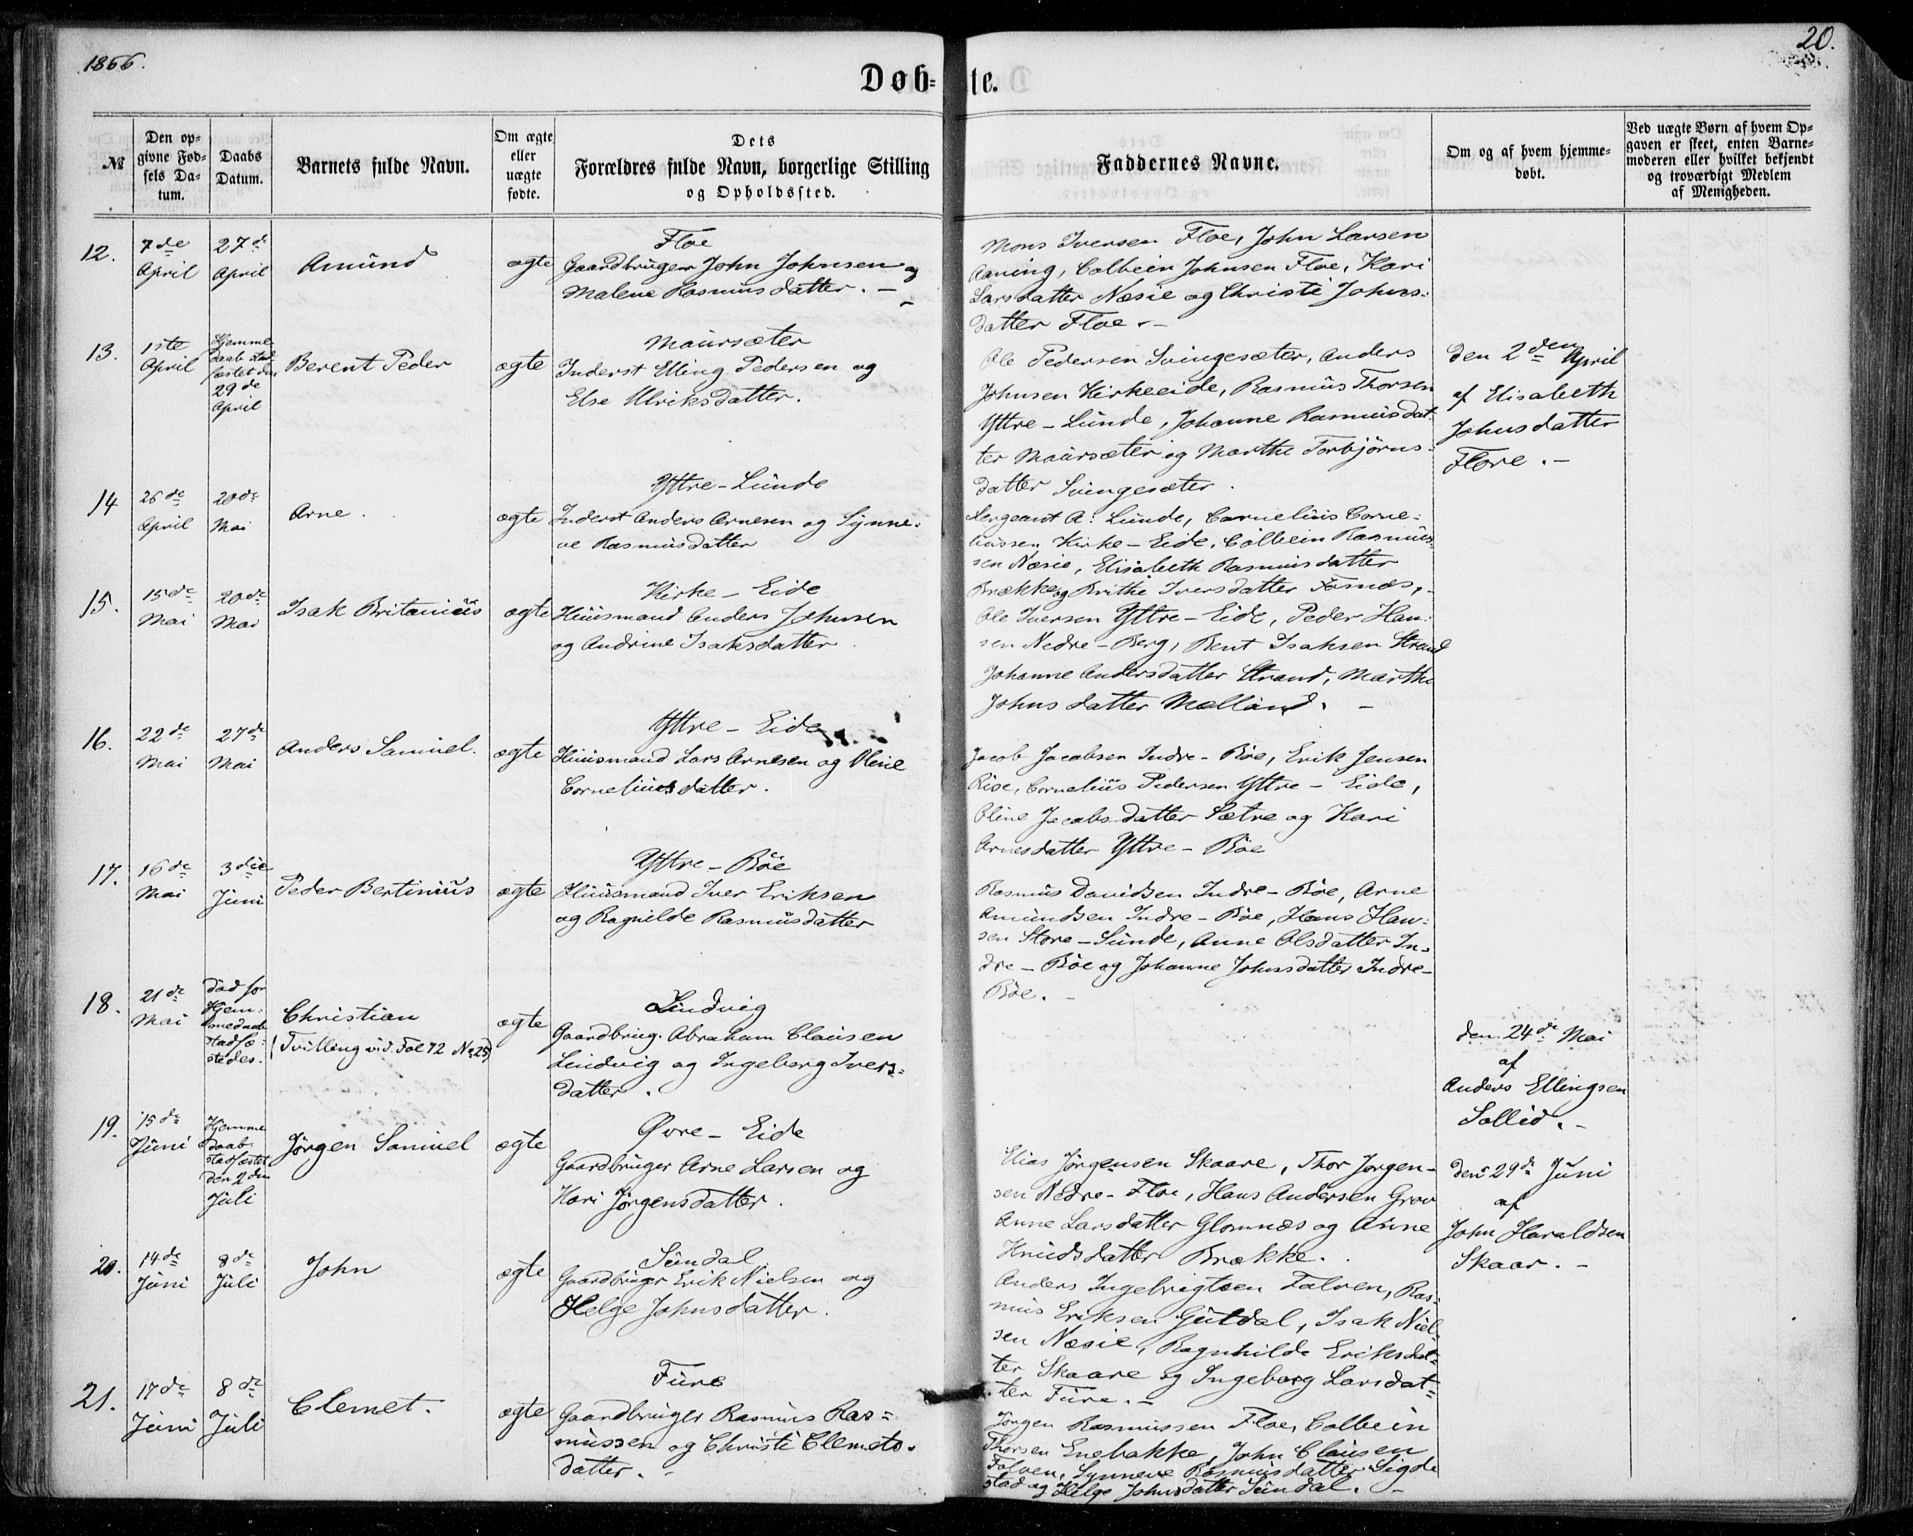 1866.
20.
Døb-te.
№
Den op-
givne Fød-
sels Da-
tum.
Daabs
Datum.
Barnets fulde Navn.
Om ægte
eller
uægte
fødte.
Dets
Forældres fulde Navn, borgerlige Stilling
og Opholdssted.
Faddernes Navne.
Om og af hvem hjemme-
døbt.
Ved uægte Børn af hvem Op-
gaven er skeet, enten Barne-
moderen eller hvilket bekjendt
og troværdigt Medlem
af Menigheden.
12.
7de
April
27de
April
Amund
ægte
Floe
Gaardbruger John Johnsen og
Malene Rasmusdatter. -
Mons Iversen Floe, John Larsen
Aaning, Colbein Johnsen Floe, Kari
Larsdatter Næsie og Christi Johns-
datter Floe. -
13.
1ste
April
Hjemme
daab stad
fæstet den
29de
April
Berent Peder
ægte
Maursæter
Inderst Elling Pedersen og
Else Ulriksdatter.
Ole Pedersen Svingesæter, Anders
Johnsen Kirkeeide, Rasmus Thorsen
Yttre-Lunde, Johanne Rasmusdat-
ter Maursæter og Marthe Torbjørns-
datter Svingesæter.
den 2den April
af Elisabeth
Johnsdatter
Flore. -
14
26de
April
20de
Mai
Arne.
ægte
Yttre-Lunde
Inderst Anders Arnesen og Synne-
ve Rasmusdatter
Sergeant A: Lunde, Cornelius Corne-
liussen Kirke-Eide, Colbein Rasmus-
sen Næsie, Elisabeth Rasmusdatter
Brække og Brithe Iversdatter Fosnæs. -
15.
15de
Mai
20de
Mai
Isak Britanius
ægte
Kirke-Eide
Huusmand Anders Johnsen
og Andrine Isaksdatter.
Ole Iversen Yttre-Eide, Peder Han-
sen Nedre-Berg, Bent Isaksen Strand
Johanne Andersdatter Strand, Marthe
Johnsdatter Mælland. -
16.
22de
Mai
27de
Mai
Anders Samuel.
ægte
Yttre-Eide
Huusmand Lars Arnesen og Oline
Corneliusdatter.
Jacob Jacobsen Indre-Bøe, Erik Jensen
Rise, Cornelius Pedersen Yttre-Eide,
Oline Jacobsdatter Sætre og Kari
Arnesdatter Yttre-Bøe
17.
16de
Mai
3die
Juni
Peder Bertinius
ægte
Yttre-Bøe
Huusmand Iver Eriksen
og Ragnilde Rasmusdatter
Rasmus Davidsen Indre-Bøe, Arne
Amundsen Indre-Bøe, Hans Han-
sen Store-Sunde, Anne Olsdatter In-
dre-Bøe og Johanne Johnsdatter Indre-
Bøe. -
18.
21de
Mai
Død før
Hjem-
medaab
stadfæ-
stedes.
Christian
(Tvilling vid. Fol 72 No 25)
ægte
Lindvig
Gaardbrug. Abraham Clausen
Lindvig og Ingeborg Ivers-
datter.
den 24de Mai
af
Anders Ellingsen
Sollid. -
19.
15de
Juni
Hjemme
daab
stadfæstet
den 2den
Juli
Jørgen Samuel
ægte
Øvre-Eide
Gaardbruger Arne Larsen og
Kari Jørgensdatter.
Elias Jørgensen Skaare, Thor Jørgen-
sen Nedre-Floe, Hans Andersen Grov
Anne Larsdatter Glomnæs og Anne
Knudsdatter Brække.
den 29de Juni
af
John Haraldsen
Skaar. -
20.
14de
Juni
8de
Juli
John
ægte
Sundal
Gaardbruger Erik Nielsen og
Helge Johnsdatter.
Anders Ingebrigtsen Folven, Ras-
mus Eriksen Guldal, Isak Niel-
sen Næsie, Ragnhilde Eriksdat-
ter Skaare og Ingeborg Larsdat-
ter Fure. -
21.
17de
Juni
8de
Juli
Clemet.
ægte
Fure
Gaardbruger Rasmus Ras-
mussen og Christi Clemets-
datter. -
Jørgen Rasmussen Floe, Colbein
Thorsen Enebakke, John Clausen
Folven, Synneve Rasmusdatter Sigde
stad og Helge Johnsdatter Sundal. -